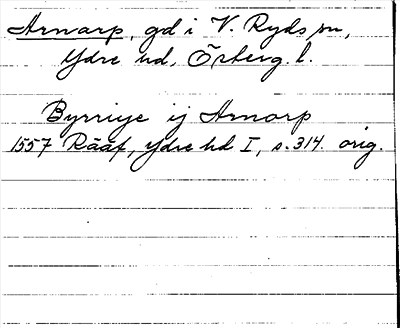 Arnarp, gd i V. Ryds sn,
Ydre hd, Österg. l.
Byrriye ij Arnarp
1557 Rääf, Ydre hd I, s. 314. orig.